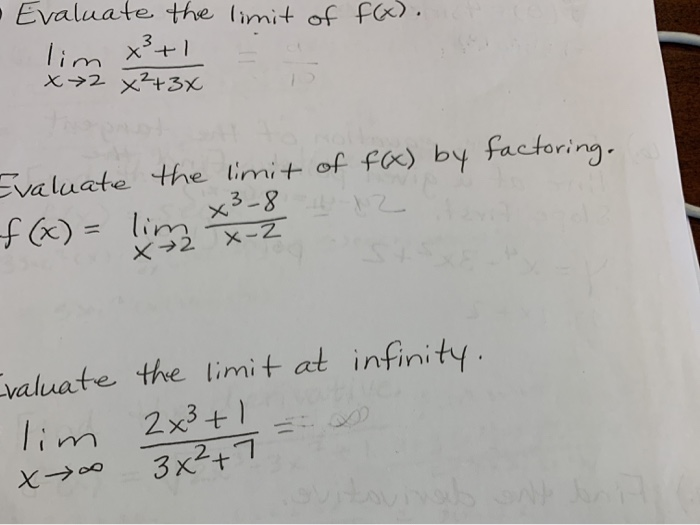 Evaluate the limit of f(x).
lim x→2 (x³+1)/(x²+3x) =
Evaluate the limit of f(x) by factoring.
f(x) = lim x→2 (x³-8)/(x-2)
Evaluate the limit at infinity.
lim x→∞ (2x³+1)/(3x²+7) = ∞